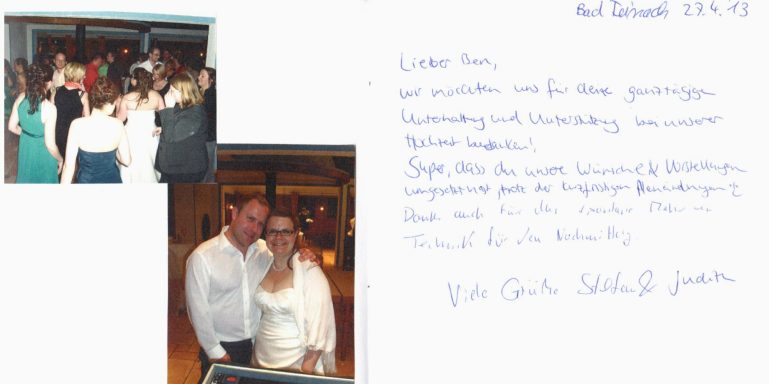 Bad Teinach 27.4.'13
Lieber Ben,
wir möchten uns für deine ganztägige
Unterhaltung und Unterstützung bei unserer
Hochzeit bedanken!
Super, dass du unsere Wünsche & Vorstellungen
umgesetzt hast, trotz der kurzfristigen Planänderungen
Danke auch für das spontane Mehr an
Technik für den Nachmittag.
Viele Grüße Stefan & Judith